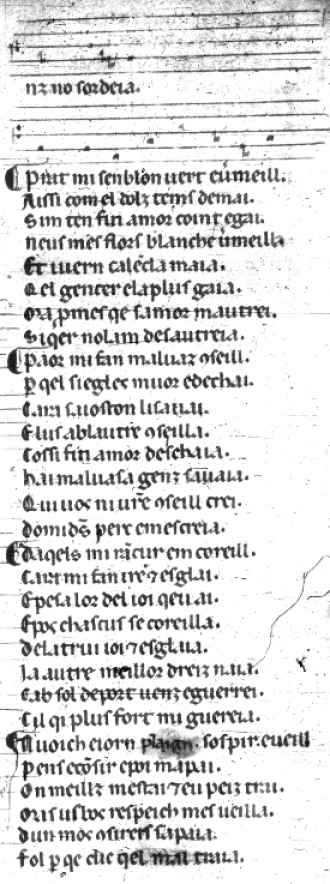 nz no sordeia.
Priut mi senblon uert e uimeill.
Aussi com el dolz tems de mai.
Sim ten fin amor coint egai.
neus mes flors blanche uimeilla
Et iuern calēda maia.
Q el genter e la plus gaia.
Ora pmes qe samor mautrei.
Siqer nolam desautreia.
Paor mi fan maluaz ɔseill.
p qel siegles muor e dechai.
Cara saioston li sauai.
Elus ab lautre ɔseilla.
Cossi fin amor deschaia.
hai maluasa genz sauaia.
Qui uos ni ure ɔseill crei.
domideu perc e mescreia.
Daqels mi rancur em coreill.
Carz mi fan ire ⁊ esglai.
E pesa lor del ioi qeu ai.
E pos chascus se coreilla.
de lautrui ioi ⁊ esglaia.
Ia autre meillor dreiz naia.
Cab sol deport uenz e guerrei.
Cil qi plus fort mi guereia.
Nuoich e iorn plaign. sospir. eueill
Pens e cōsir e poi mapai.
On meillz mestai ⁊ eu peiz trai.
Mas us bos respeich mes ueilla.
dun mos ɔsirers sapaia.
fol p qe dic qel mal traia.